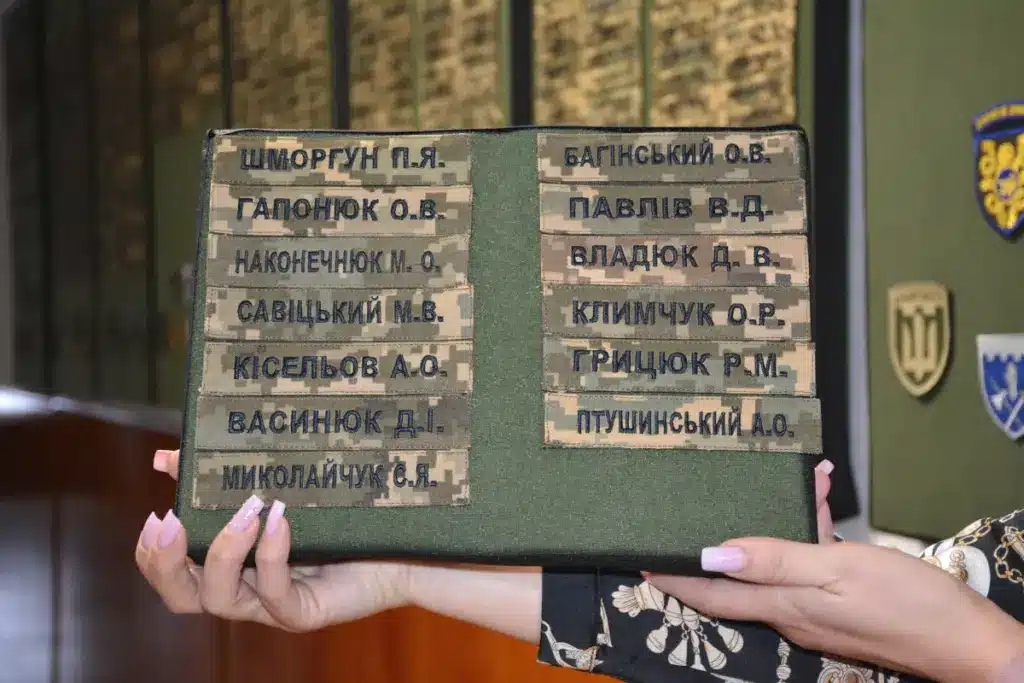 ШМОРГУН П.Я.
ГАПОНЮК О.В.
НАКОНЕЧНЮК М. О.
САВІЦЬКИЙ М.В.
КІСЕЛЬОВ А.О.
ВАСИНЮК Д.І.
МИКОЛАЙЧУК Є.Я.
БАГІНСЬКИЙ О.В.
ПАВЛІВ В.Д.
ВЛАДЮК Д. В.
КЛИМЧУК О.Р.
ГРИЦЮК Р.М.
ПТУШИНСЬКИЙ А.О.